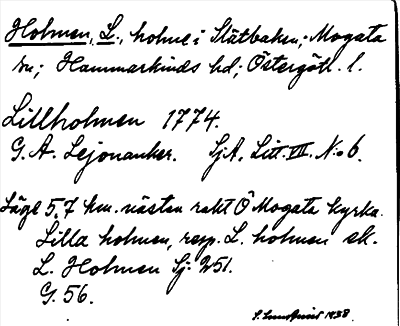 Holmen, L., holme i Slätbaken; Mogata
sn; Hammarkinds hd; Östergötl. l.
Lillholmen 1774.
G. A. Lejonanker. SjA, Litt. VII. No 6.
Läge 5,7 km. nästan rakt Ö Mogata kyrka.
Lilla holmen, resp. L. holmen ek.
L. Holmen Sj: 251.
G. 56.
1938